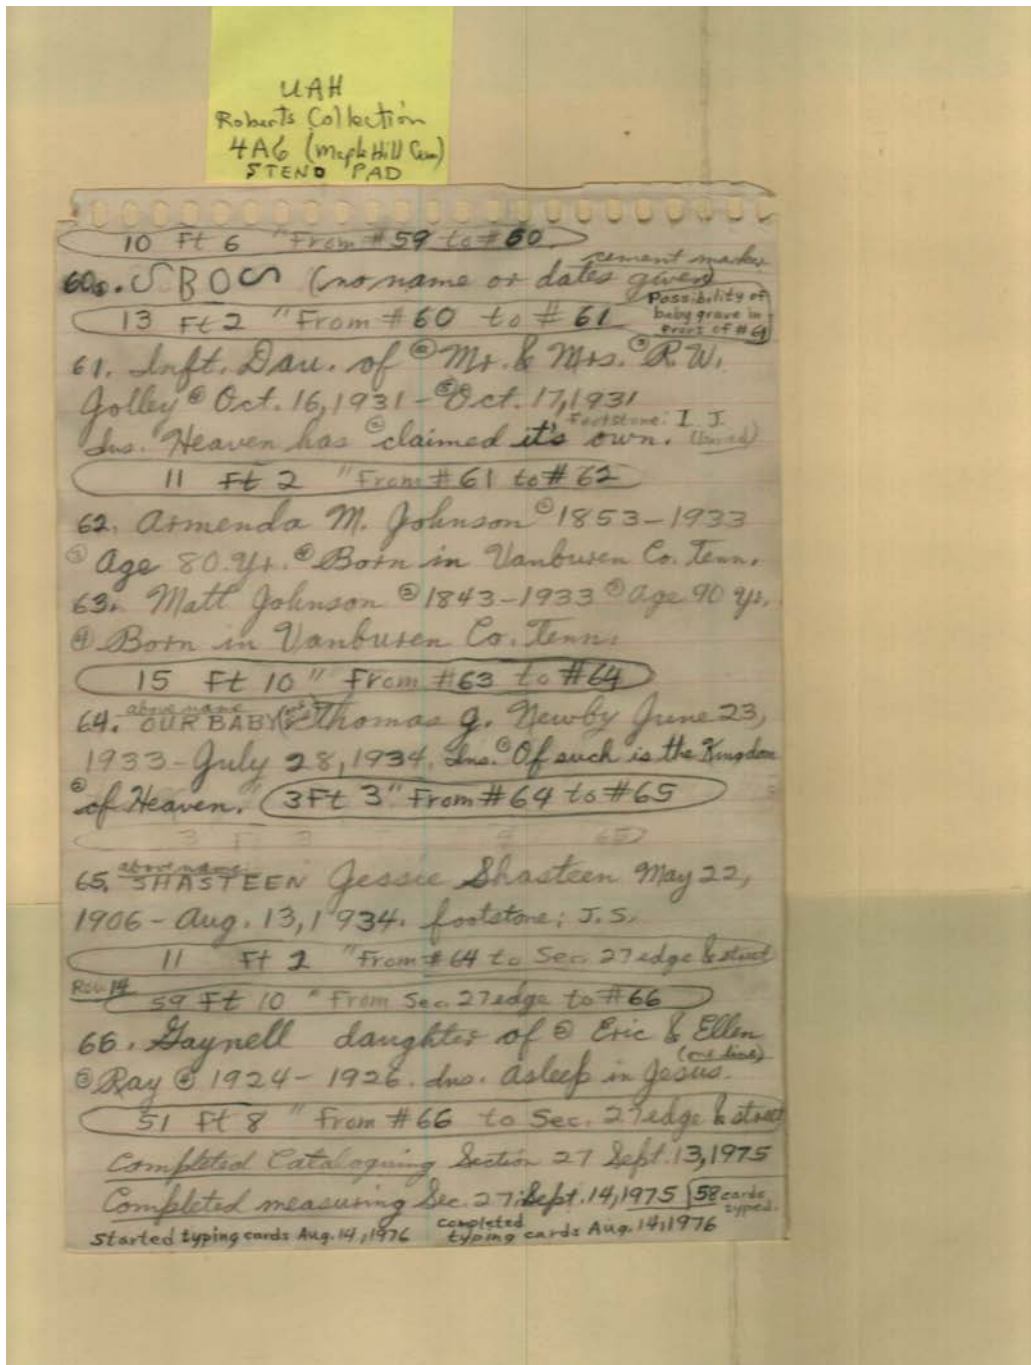 UAH
Roberts Collection
4A6 (Maple Hill Cem)
STENO PAD
10 Ft 6 "From #59 to #60
cement marker
60. SBOS (no name or dates given)
13 Ft 2 "From #60 to #61
Possibility of
baby grave in
front of #61
61. Inft. Dau. of ② Mr. & Mrs. ③ R.W.
Jolley ④ Oct. 16, 1931 - ⑤ Oct. 17, 1931
Footstone: I. J.
Ins. Heaven has ② claimed it's own.
11 Ft 2 "From #61 to #62
62. Armenda M. Johnson ② 1853-1933
③ Age 80 Yr. ④ Born in Vanburen Co. Tenn.
63. Matt Johnson ② 1843-1933 ③ age 90 yr.
④ Born in Vanburen Co. Tenn.
15 Ft 10 " From #63 to #64
above name
64. OUR BABY Thomas J. Newby June 23,
1933 - July 28, 1934. Ins. Of such is the Kingdom
② of Heaven. 3 Ft 3" From #64 to #65
3 F 3 65
above name
65. SHASTEEN Jessie Shasteen May 22,
1906 - Aug. 13, 1934. footstone: J.S.
11 Ft 2 "From #64 to Sec. 27 edge & street
Row 14
59 Ft 10 " From Sec. 27 edge to #66
66. Gaynell daughter of ② Eric & Ellen
(one line)
③ Ray ④ 1924 - 1926. Ins. Asleep in Jesus.
51 Ft 8 " From #66 to Sec. 27 edge & street
Completed Cataloguing Section 27 Sept. 13, 1975
Completed measuring Sec. 27: Sept. 14, 1975 58 cards
typed.
Started typing cards Aug. 14, 1976 completed
typing cards Aug. 14, 1976